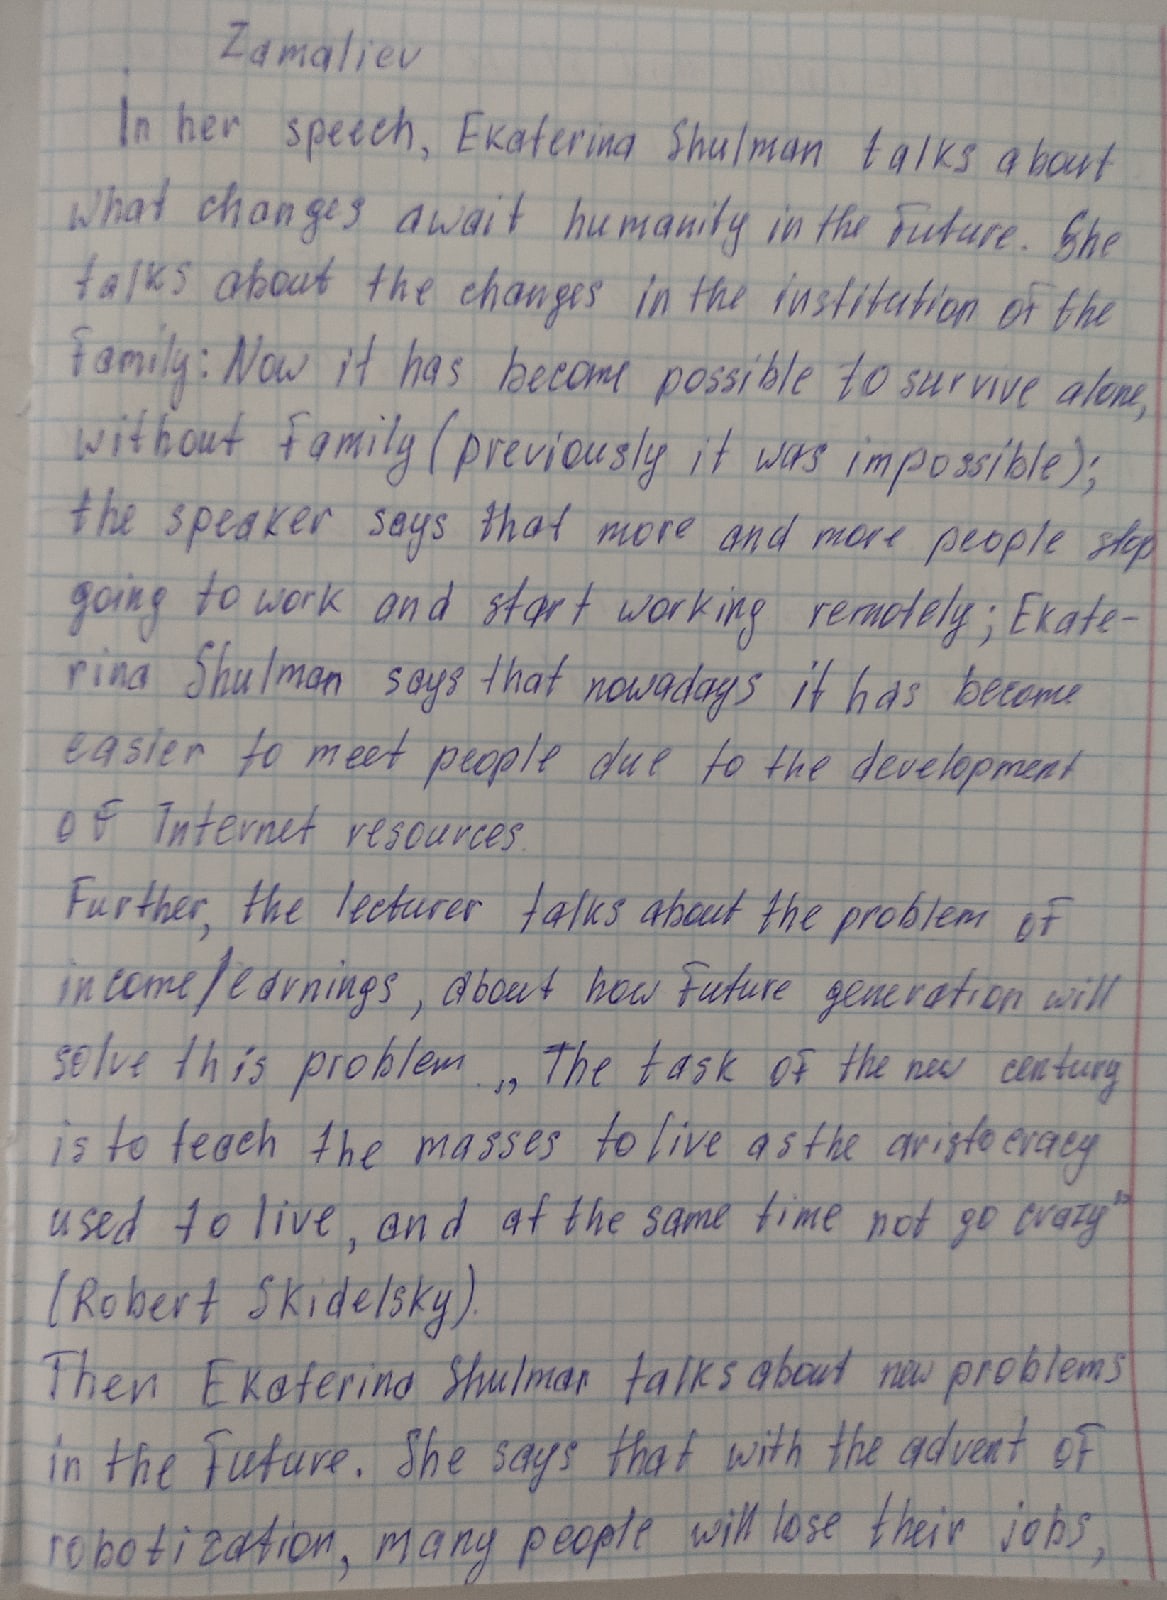 Zamaliev
In her speech, Ekaterina Shulman talks about
what changes await humanity in the future. She
talks about the changes in the institution of the
family: Now it has become possible to survive alone,
without family (previously it was impossible);
the speaker says that more and more people stop
going to work and start working remotely; Ekate-
rina Shulman says that nowadays it has become
easier to meet people due to the development
of Internet resources.
Further, the lecturer talks about the problem of
income/earnings, about how future generation will
solve this problem. „The task of the new century
is to teach the masses to live as the aristocracy
used to live, and at the same time not go crazy”
(Robert Skidelsky).
Then Ekaterina Shulman talks about new problems
in the future. She says that with the advent of
robotization, many people will lose their jobs,